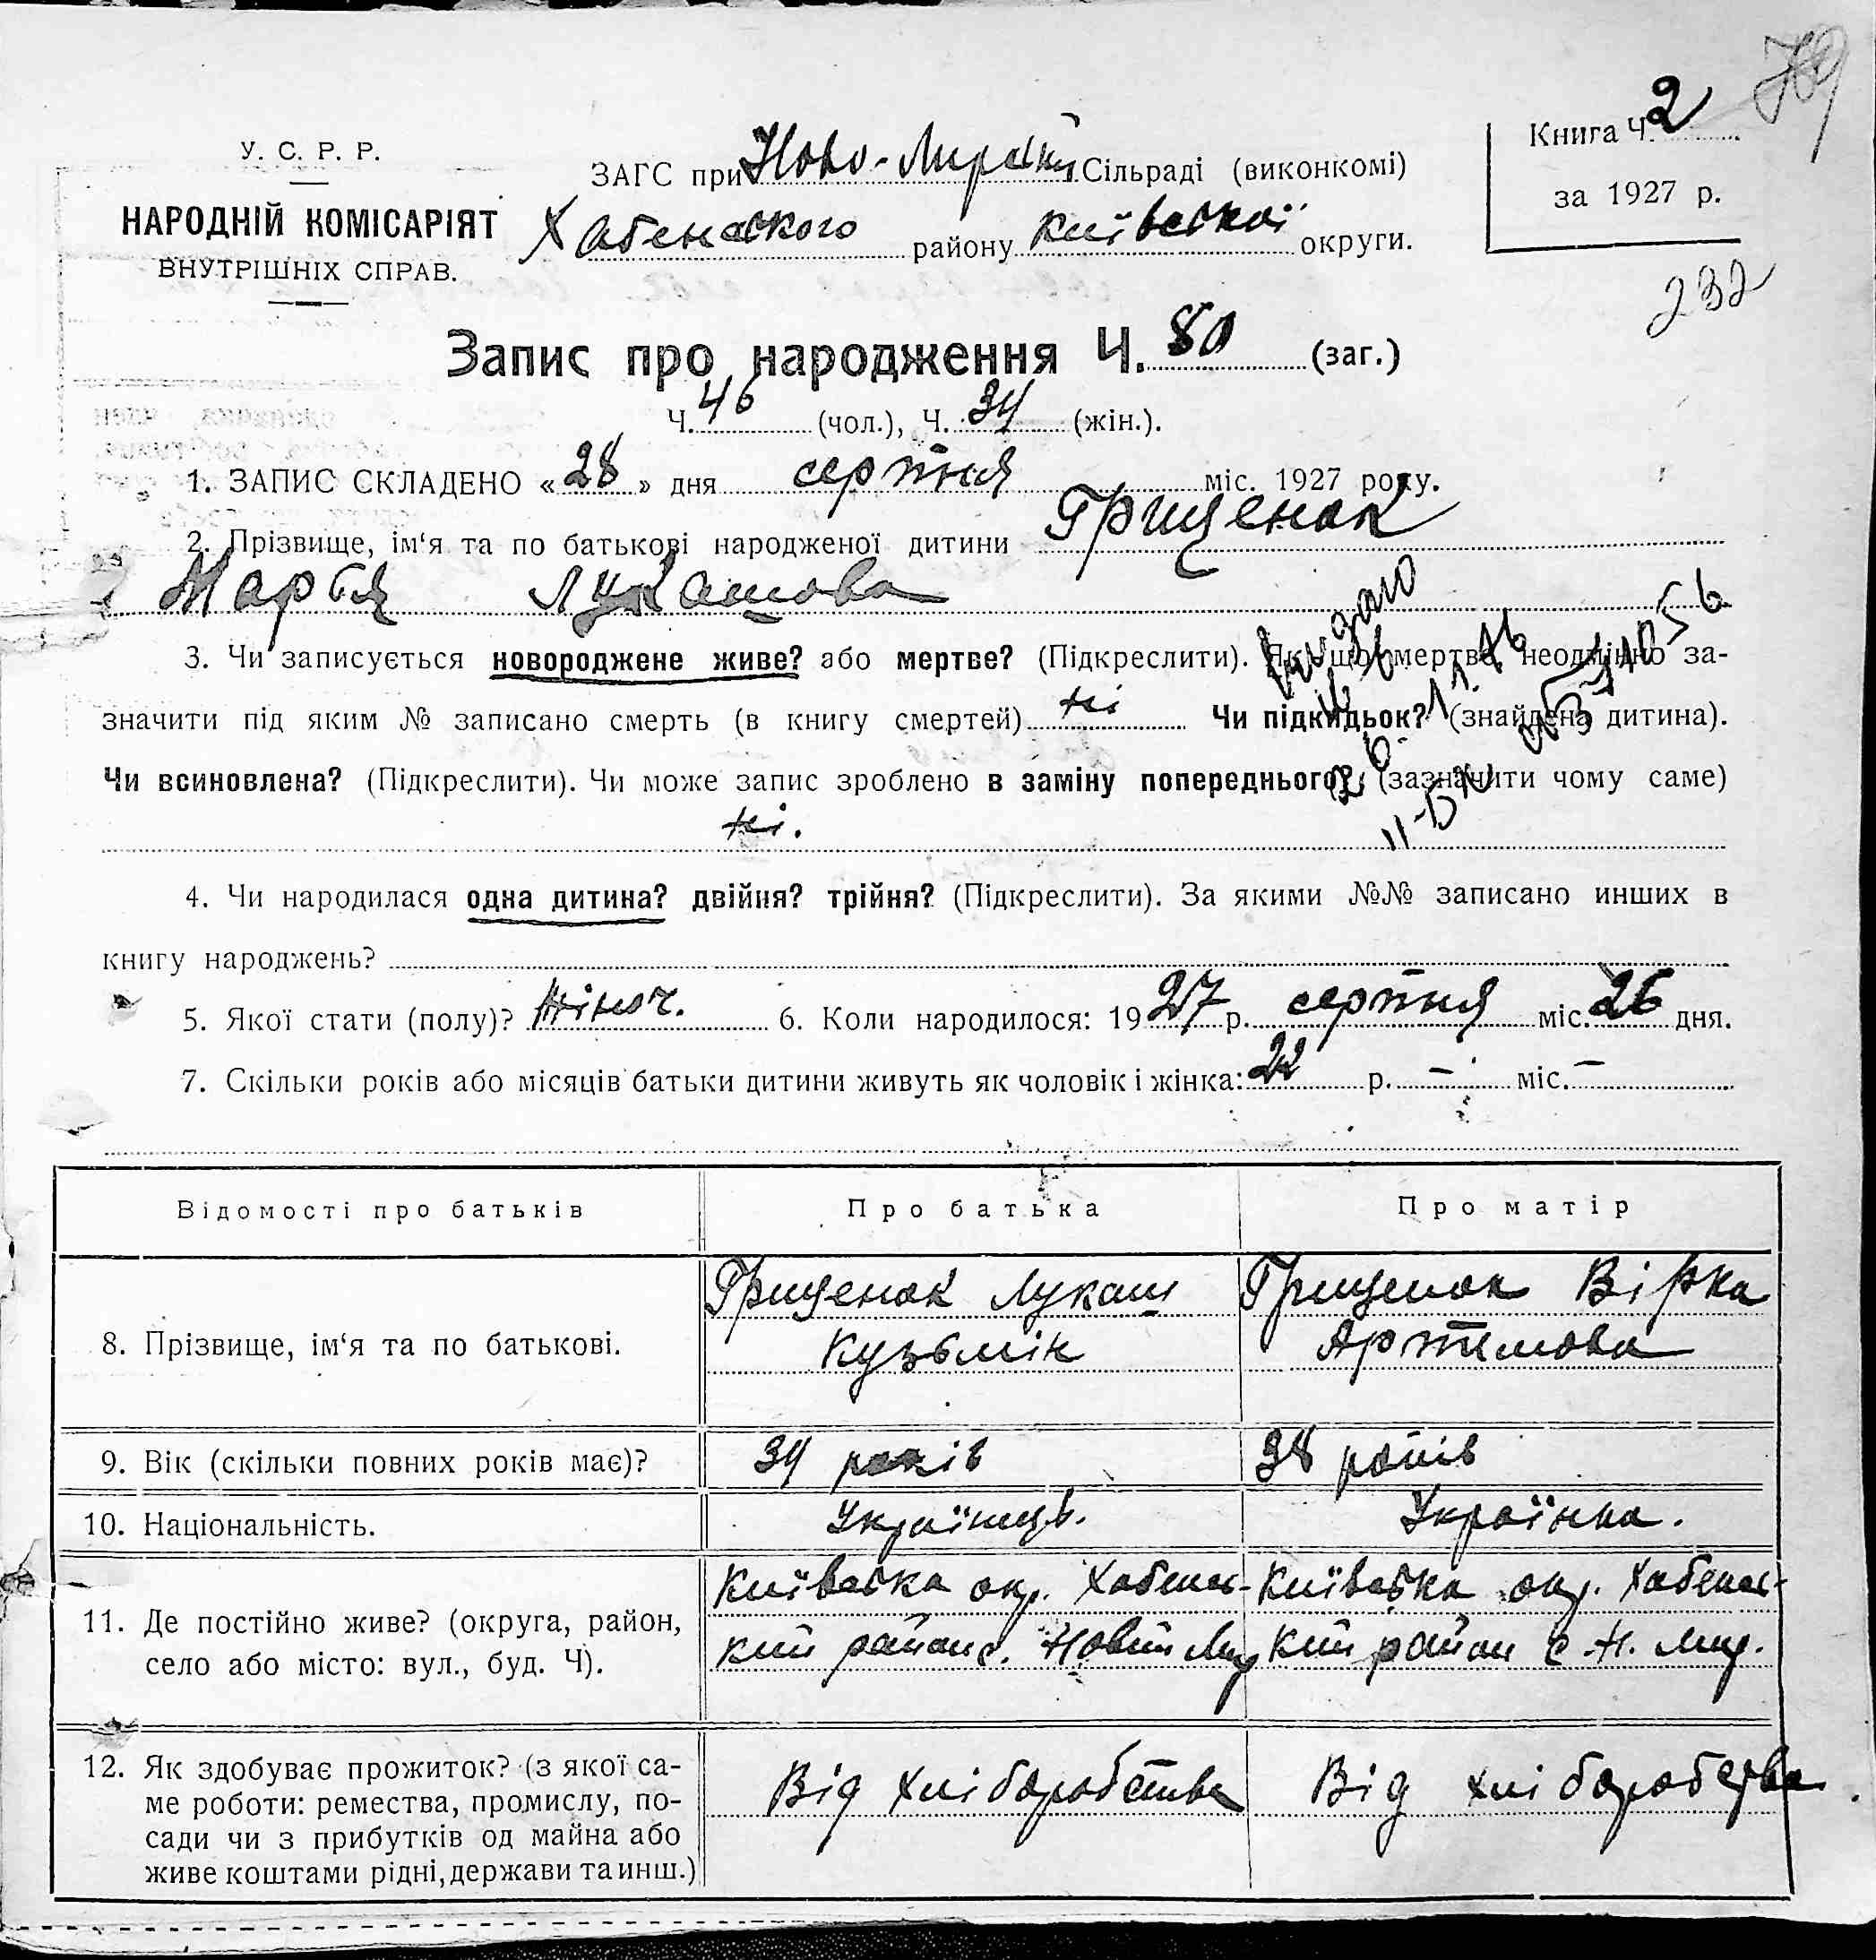 79
У. С. Р. Р.
НАРОДНІЙ КОМІСАРІЯТ
ВНУТРІШНІХ СПРАВ.
ЗАГС при Ново-Мирській Сільраді (виконкомі)
Хабенського району Київської округи.
Книга Ч. 2
за 1927 р.
232
Запис про народження Ч. 80 (заг.)
Ч. 46 (чол.), Ч. 34 (жін.).
1. ЗАПИС СКЛАДЕНО «28» дня серпня міс. 1927 року.
2. Прізвище, ім‘я та по батькові народженої дитини Грищенок
Мар'я Лукашова
3. Чи записується новороджене живе? або мертве? (Підкреслити). Якщо мертве неодмінно за-
значити під яким № записано смерть (в книгу смертей) ні Чи підкидьок? (знайдена дитина).
Чи всиновлена? (Підкреслити). Чи може запис зроблено в заміну попереднього? (зазначити чому саме)
ні.
4. Чи народилася одна дитина? двійня? трійня? (Підкреслити). За якими №№ записано инших в
книгу народжень?
5. Якої стати (полу)? жіноч. 6. Коли народилося: 1927 р. серпня міс. 26 дня.
7. Скільки років або місяців батьки дитини живуть як чоловік і жінка: 22 р. — міс. —
Відомості про батьків Про батька Про матір
8. Прізвище, ім‘я та по батькові. Грищенок Лукаш Грищенок Вірка
Кузьмін Артемова
9. Вік (скільки повних років має)? 34 років 38 років
10. Національність. Українець. Українка.
11. Де постійно живе? (округа, район, Київська окр. Хабенс- Київська окр. Хабенс-
село або місто: вул., буд. Ч). кий район с. Новий Мир кий район с. Н. Мир.
12. Як здобуває прожиток? (з якої са-
ме роботи: ремества, промислу, по- Від хліборобства Від хліборобства
сади чи з прибутків од майна або
живе коштами рідні, держави та инш.)